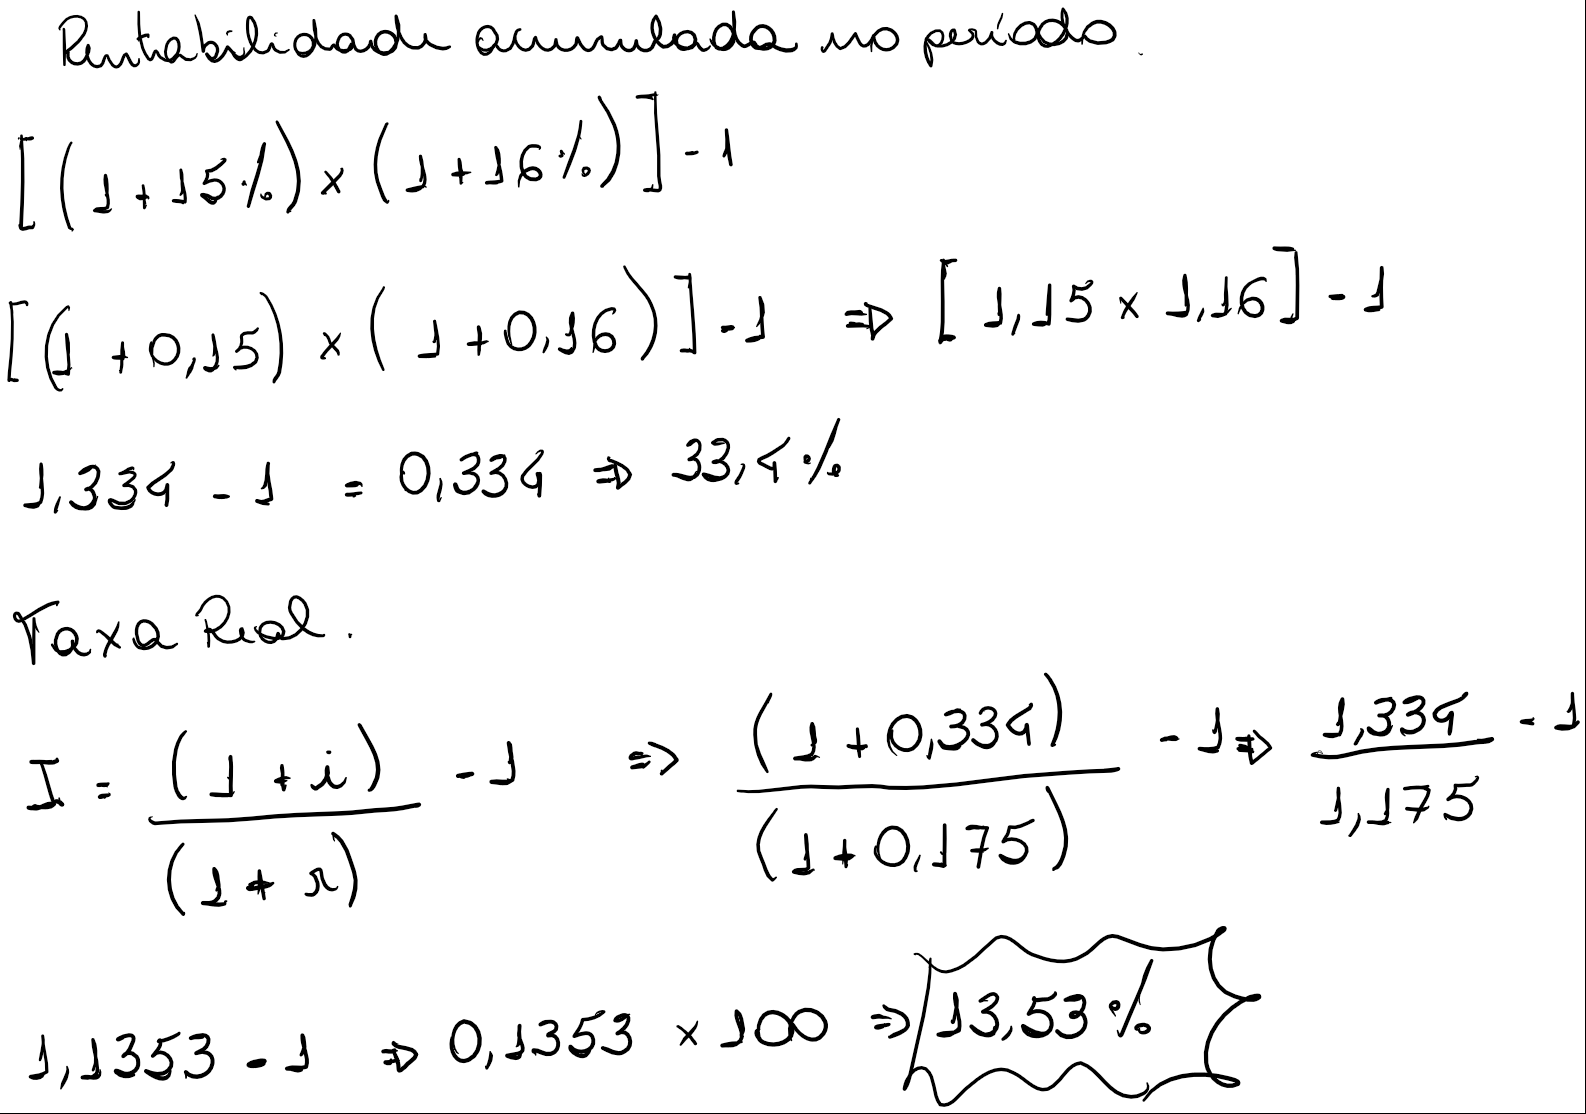 Rentabilidade acumulada no período.
[(1 + 15%) x (1 + 16%)] - 1
[(1 + 0,15) x (1 + 0,16)] - 1 => [1,15 x 1,16] - 1
1,334 - 1 = 0,334 => 33,4%
Taxa Real.
I = (1 + i) / (1 + r) - 1 => (1 + 0,334) / (1 + 0,175) - 1 => 1,334 / 1,175 - 1
1,1353 - 1 => 0,1353 x 100 => 13,53%